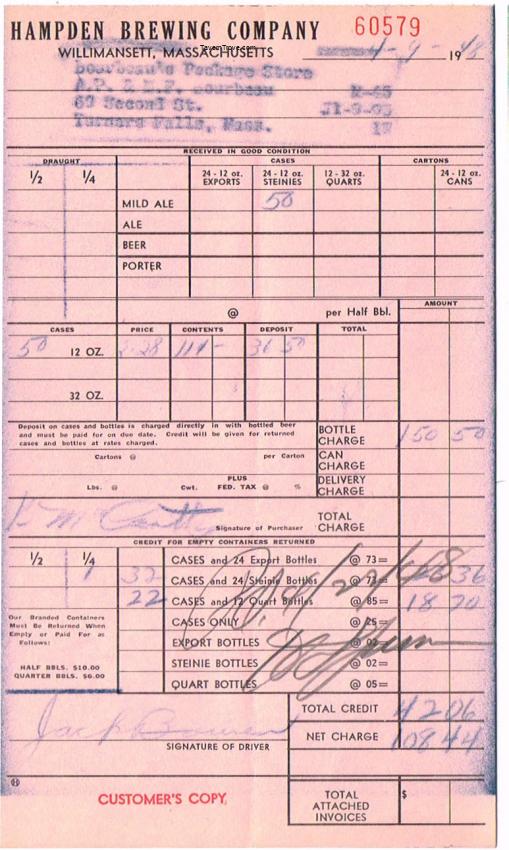 HAMPDEN BREWING COMPANY 60579
WILLIMANSETT, MASSACHUSETTS 4-9- 19 48
Bourbeau's Package Store
A.P. & E.F. Bourbeau R-45
69 Second St.
Turners Falls, Mass. 17
RECEIVED IN GOOD CONDITION
DRAUGHT CASES CARTONS
1/2 1/4 24 - 12 oz. EXPORTS 24 - 12 oz. STEINIES 12 - 32 oz. QUARTS 24 - 12 oz. CANS
MILD ALE 50
ALE
BEER
PORTER
@ per Half Bbl. AMOUNT
CASES PRICE CONTENTS DEPOSIT TOTAL
50 12 OZ. 2.28 114 - 36 50
32 OZ.
Deposit on cases and bottles is charged directly in with bottled beer
and must be paid for on due date. Credit will be given for returned
cases and bottles at rates charged.
BOTTLE CHARGE 150 50
Cartons @ per Carton CAN CHARGE
Lbs. @ Cwt. PLUS FED. TAX @ % DELIVERY CHARGE
Signature of Purchaser TOTAL CHARGE
CREDIT FOR EMPTY CONTAINERS RETURNED
1/2 1/4 CASES and 24 Export Bottles @ 73 =
1 32 CASES and 24 Steinie Bottles @ 73 = 36
22 CASES and 12 Quart Bottles @ 85 = 18 70
CASES ONLY @ 25 =
EXPORT BOTTLES @ 02 =
STEINIE BOTTLES @ 02 =
QUART BOTTLES @ 05 =
Our Branded Containers
Must Be Returned When
Empty or Paid For as
Follows:
HALF BBLS. $10.00
QUARTER BBLS. $6.00
TOTAL CREDIT 42 06
NET CHARGE 108 44
Jack Bowen
SIGNATURE OF DRIVER
CUSTOMER'S COPY
TOTAL ATTACHED INVOICES $